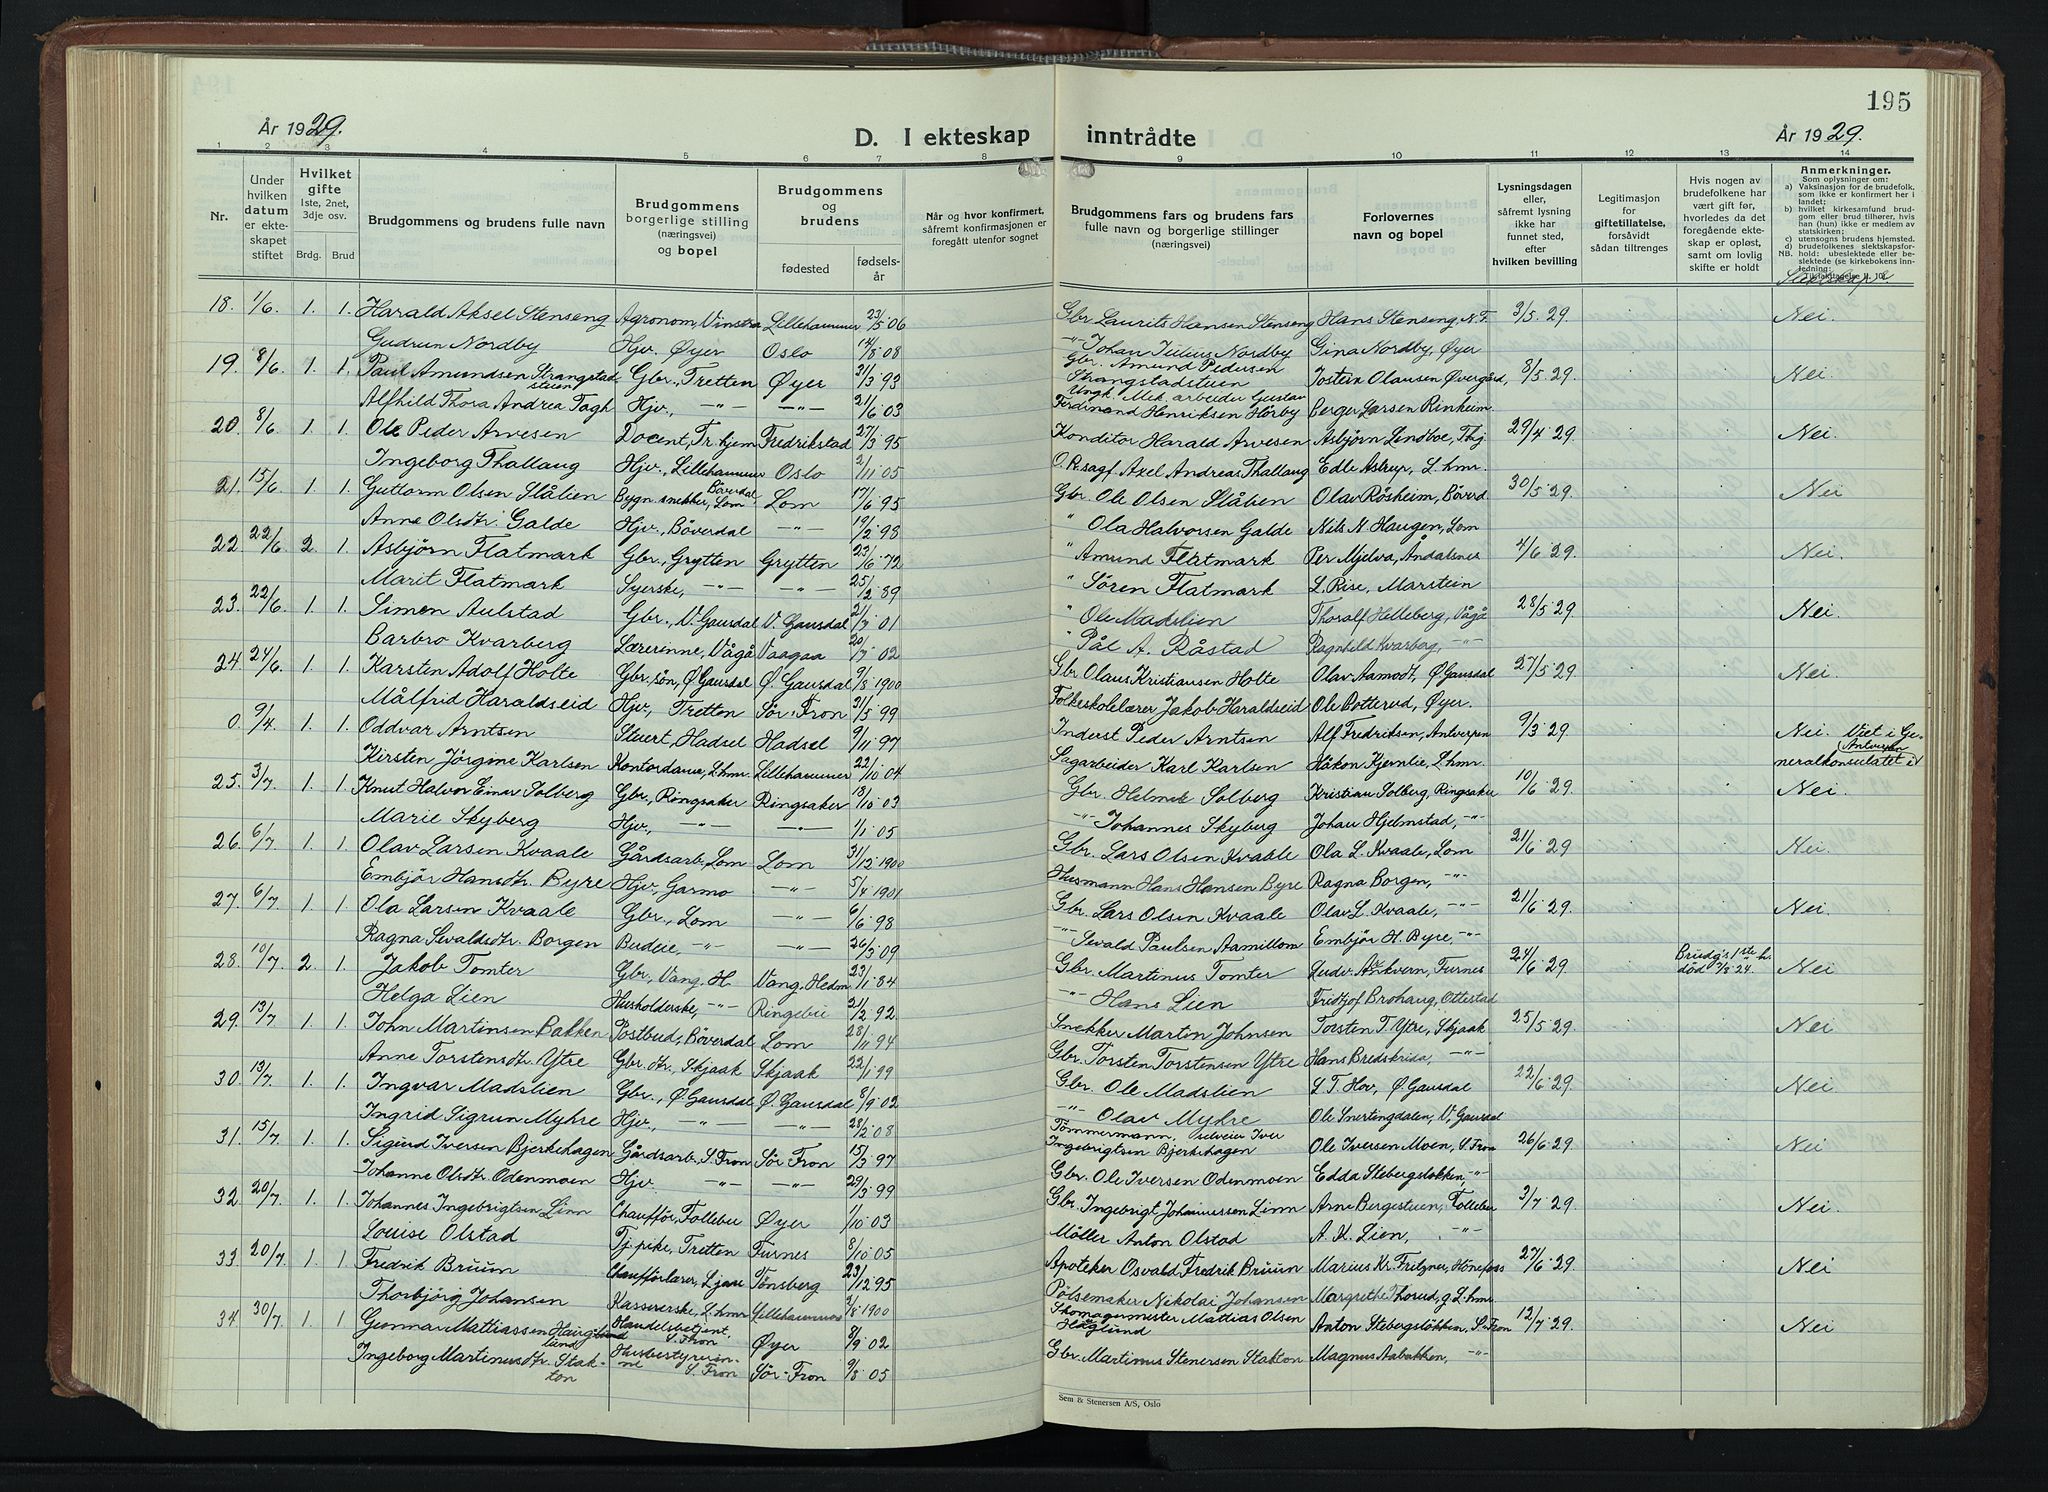 195
År 1929.
År 1929.
D. I ekteskap inntrådte
1 2 3 4 5 6 7 8 9 10 11 12 13 14
Nr.
Under hvilken datum er ekteskapet stiftet
Hvilket gifte 1ste, 2net, 3dje osv.
Brdg. Brud
Brudgommens og brudens fulle navn
Brudgommens borgerlige stilling (næringsvei) og bopel
Brudgommens og brudens
fødested
fødselsår
Når og hvor konfirmert, såfremt konfirmasjonen er foregått utenfor sognet
Brudgommens fars og brudens fars fulle navn og borgerlige stillinger (næringsvei)
Forlovernes navn og bopel
Lysningsdagen eller, såfremt lysning ikke har funnet sted, efter hvilken bevilling
Legitimasjon for giftetillatelse, forsåvidt sådan tiltrenges
Hvis nogen av brudefolkene har vært gift før, hvorledes da det foregående ekteskap er opløst, samt om lovlig skifte er holdt
Anmerkninger.
Som oplysninger om:
a) Vaksinasjon for de brudefolk, som ikke er konfirmert her i landet;
b) hvilket kirkesamfund brudgom eller brud tilhører, hvis han (hun) ikke er medlem av statskirken;
c) utensogns brudens hjemsted.
d) brudefolkenes slektskapsforhold: ubeslektede eller beslektede (se kirkebokens innledning:
NB.
Slektskap
18. 1/6 1. 1. Harald Aksel Stenseng Agronom, Vinstra Lillehammer 23/5 06 Gbr. Laurits Hansen Stenseng Hans Stenseng, N.F. 3/5. 29. Nei.
Gudrun Nordby Hjv. Øyer Oslo 14/8 08 -"- Johan Julius Nordby Gina Nordby, Øyer
19. 8/6 1. 1. Paul Amundsen Strangstadstuen Gbr., Tretten Øyer 21/3 93 Gbr. Amund Pedersen Strangstadstuen Jostein Olausen Øvergård, 8/5. 29. Nei.
Alfhild Thora Andrea Fagh Hjv., -"- -"- 21/6 03 Ungk. Mek. arbeider Gustav Ferdinand Henriksen Hörby Berger Larsen Rinheim.
20. 8/6 1. 1. Ole Peder Arvesen Docent, Tr.hjem Fredrikstad 27/3 95 Konditor Harald Arvesen Asbjørn Lindboe, Thj. 29/4 29. Nei.
Ingeborg Thallaug Hjv., Lillehammer Oslo 2/11 05 O.R.sagf. Axel Andreas Thallaug Edle Astrup, L.hmr.
21. 15/6 1. 1. Guttorm Olsen Slålien Bygn.snekker, Böverdal, Lom Lom 17/6 95 Gbr. Ole Olsen Slålien Olav Røsheim, Böverd. 30/5. 29. Nei
Anne Olsdtr. Galde Hjv., Böverdal -"- 19/2 98 " Ola Halvorsen Galde Nils N. Haugen, Lom
22. 22/6 2. 1. Asbjørn Flatmark Gbr., Grytten Grytten 23/6 72 " Amund Flatmark Per Mjelva, Åndalsnes 4/6. 29. Nei.
Marit Flatmark Syerske, -"- -"- 25/2 89 " Sören Flatmark L. Rise, Marstein
23. 22/6 1. 1. Simen Aulstad Gbr., V. Gausdal V. Gausdal 21/7 01 " Ole Madslien Thoralf Helleberg, Vågå 28/5 29. Nei.
Barbro Kvarberg Lærerinne, Vågå Vaagaa 20/7 02 " Pål A. Råstad Ragnhild Kvarberg, -"-
24. 24/6 1. 1. Karsten Adolf Holte Gbr.sön, Ø. Gausdal Ø. Gausdal 9/8 1900 Gbr. Olaus Kristiansen Holte Olav Aamodt, Ø. Gausdal 27/5. 29. Nei.
Målfrid Haraldseid Hjv., Tretten Sör-Fron 31/5 99 Folkeskolelærer Jakob Haraldseid Ole Botterud, Øyer.
0. 9/4 1. 1. Oddvar Arntsen Stuert, Hadsel Hadsel 9/11 97 Inderst Peder Arntsen Alf Fredriksen, Antverpen 9/3 29 Nei. Viet i Ge-
Kirsten Jörgine Karlsen Kontordame, L.hmr. Lillehammer 22/10 04 Sagarbeider Karl Karlsen Håkon Kjernlie, L.hmr. neralkonsulatet i Antverpen
25. 3/7 1. 1. Knut Halvor Einar Solberg Gbr., Ringsaker Ringsaker 18/10 03 Gbr. Helmik Solberg Kristian Solberg, Ringsaker 10/6 29. Nei.
Marie Skyberg Hjv., -"- -"- 1/1 05 -"- Johannes Skyberg Johan Hjelmstad, -"-
26. 6/7 1. 1. Olav Larsen Kvaale Gårdsarb., Lom Lom 31/12 1900 Gbr. Lars Olsen Kvaale Ola L. Kvaale, Lom 21/6. 29 Nei.
Embjör Hansdtr. Byre Hjv., Garmo -"- 5/4 1901 Husmann Hans Hansen Byre Ragna Borgen, -"-
27. 6/7 1. 1. Ola Larsen Kvaale Gbr., Lom -"- 6/6 98 Gbr. Lars Olsen Kvaale Olav L. Kvaale, -"- 21/6. 29. Nei.
Ragna Sevaldsdtr. Borgen Budeie, -"- -"- 26/3 09 -"- Sevald Paulsen Aamillom Embjör H. Byre, -"-
28. 10/7 2. 1. Jakob Tomter Gbr., Vang. H. Vang, Hedm. 23/1 84 Gbr. Martinus Tomter Ludv. Ankvern, Furnes 24/6 29 Brudg's 1ste h. død 7/8 24. Nei
Helga Lien Husholderske, -"- Ringebu 21/2 92. -"- Hans Lien Fridtjof Brohaug, Ottestad
29. 13/7 1. 1. John Martinsen Bakken Postbud, Böverdal Lom 28/11 94 Snekker Martin Johnsen Torsten T. Ytre, Skjaak 25/5. 29. Nei
Anne Torstensdtr. Ytre Gbr.dtr., Skjaak Skjaak 22/1 99 Gbr. Torsten Torstensen Ytre Hans Bredskrida, -"-
30. 13/7 1. 1. Ingvar Madslien Gbr., Ø. Gausdal Ø. Gausdal 8/9 02 Gbr. Ole Madslien S. T. Hov, Ø. Gausdal 22/6. 29. Nei
Ingrid Sigrun Myhre Hjv., -"- -"- 28/2 08 -"- Olav Myhre Ole Snertingdalen, V. Gausdal
31. 15/7 1. 1. Sigurd Iversen Bjerkehagen Gårdsarb., S. Fron Sör-Fron 15/3 97 Tömmermann, selveier Iver Ingebrigtsen Bjerkehagen Ole Iversen Moen, S. Fron 26/6. 29. Nei
Johanne Olsdtr. Odenmoen Hjv. -"- -"- 29/3 99 Gbr. Ole Iversen Odenmoen Edda Stebergsløkken, -"-
32. 20/7 1. 1. Johannes Ingebrigtsen Linn Chauffør, Follebu Øyer 1/10 03 Gbr. Ingebrigt Johannessen Linn Arne Bergestuen, Follebu 3/7. 29. Nei.
Louise Olstad Tj.pike, Tretten Furnes 8/10 05 Möller Anton Olstad A. K. Lien, -"-
33. 20/7 1. 1. Fredrik Bruun Chaufförlærer, Ljan Tönsberg 23/12 95 Apoteker Osvald Fredrik Bruun Marius Kr. Fritzner, Hönefoss 27/6. 29. Nei
Thorbjörg Johansen Kassererske, L.hmr Lillehammer 3/8 1900 Pölsemaker Nikolai Johansen Margrethe Thorud, g. L.hmr
34. 30/7 1. 1. Gunnar Mathiassen Hauglund Handelsbetjent, S. Fron Øyer 8/9 02 Skomagermester Mathias Olsen Höglund Anton Stebergsløkken, S. Fron 12/7. 29. Nei
Ingeborg Martinusdtr. Stakton Husbestyrerinne S. Fron Sör-Fron 9/8 05 Gbr. Martinus Stenersen Stakton Magnus Aabakken, -"-
Sem & Stenersen A/S, Oslo